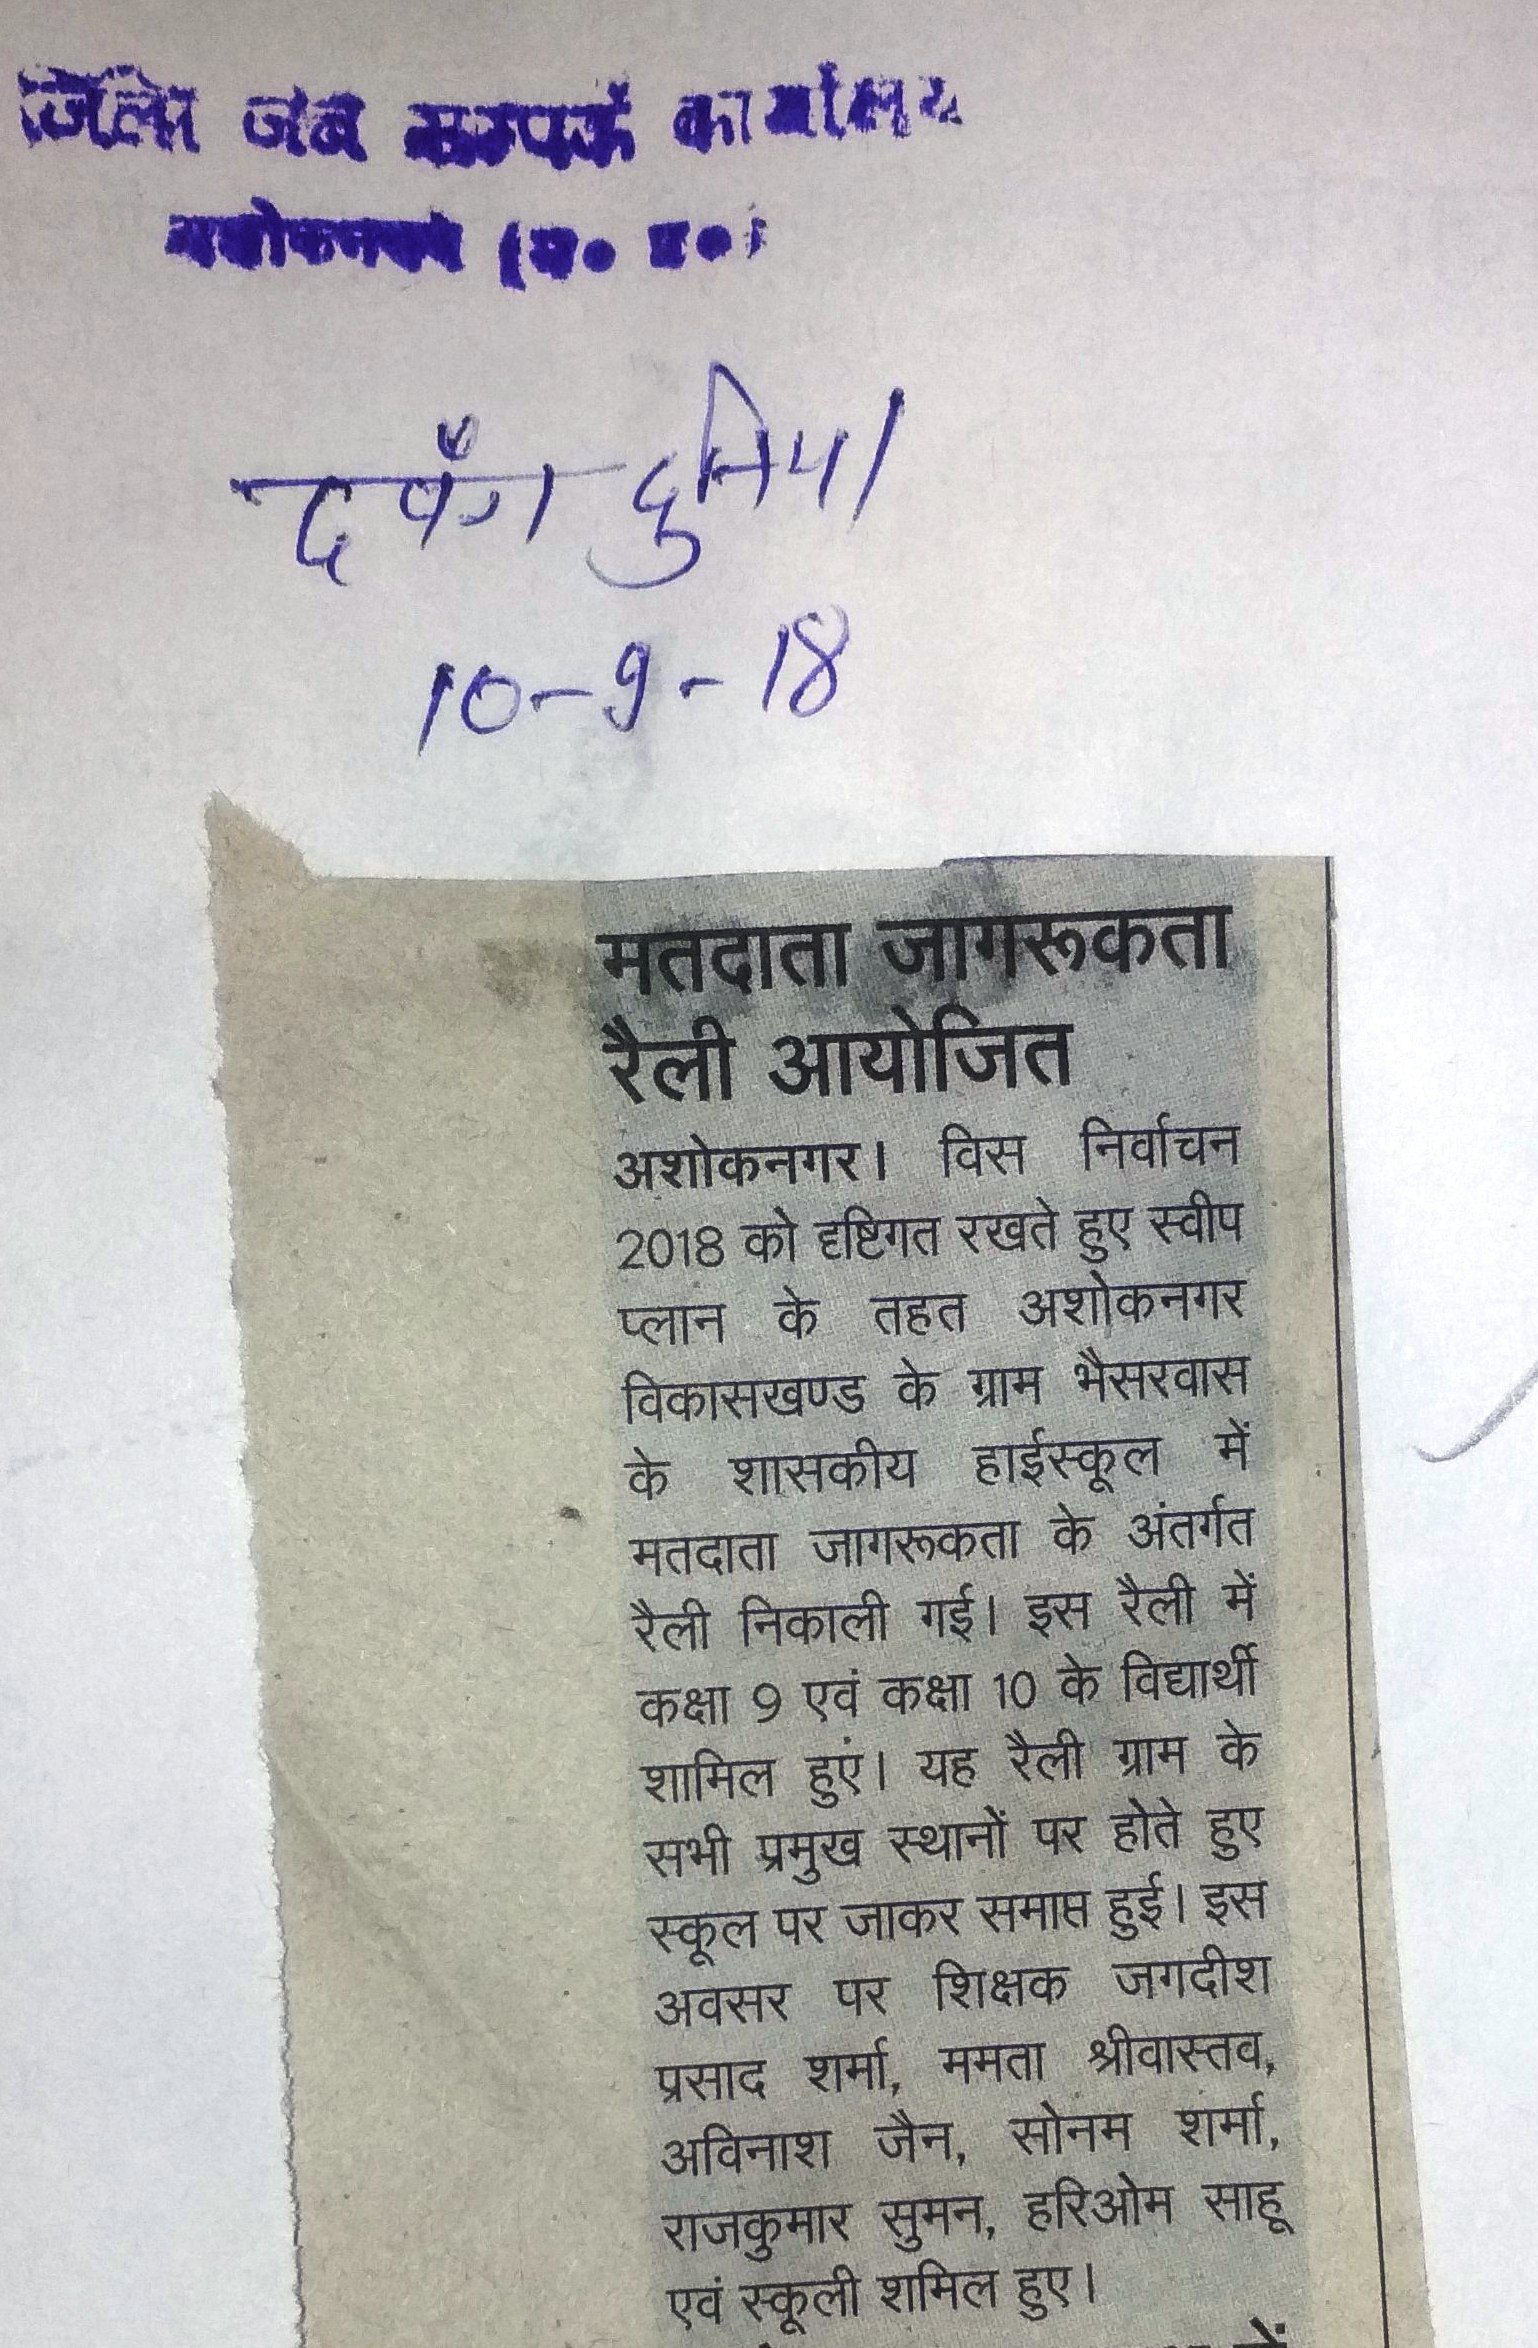 जिला जन सम्पर्क कार्यालय
अशोकनगर (म० प्र०)
दबंग दुनिया
10-9-18
मतदाता जागरूकता
रैली आयोजित
अशोकनगर। विस निर्वाचन
2018 को दृष्टिगत रखते हुए स्वीप
प्लान के तहत अशोकनगर
विकासखण्ड के ग्राम भैसरवास
के शासकीय हाईस्कूल में
मतदाता जागरूकता के अंतर्गत
रैली निकाली गई। इस रैली में
कक्षा 9 एवं कक्षा 10 के विद्यार्थी
शामिल हुएं। यह रैली ग्राम के
सभी प्रमुख स्थानों पर होते हुए
स्कूल पर जाकर समाप्त हुई। इस
अवसर पर शिक्षक जगदीश
प्रसाद शर्मा, ममता श्रीवास्तव,
अविनाश जैन, सोनम शर्मा,
राजकुमार सुमन, हरिओम साहू
एवं स्कूली शमिल हुए।